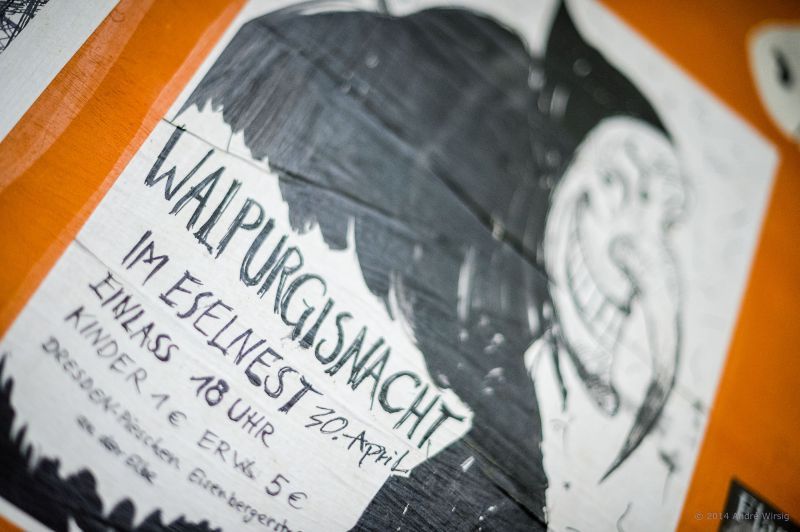 WALPURGISNACHT
IM ESELNEST 30. April
EINLASS 18 UHR
KINDER 1€ ERW. 5€
DRESDEN-Pieschen Eisenbergerstr.
an der Elbe
© 2014 André Wirsig